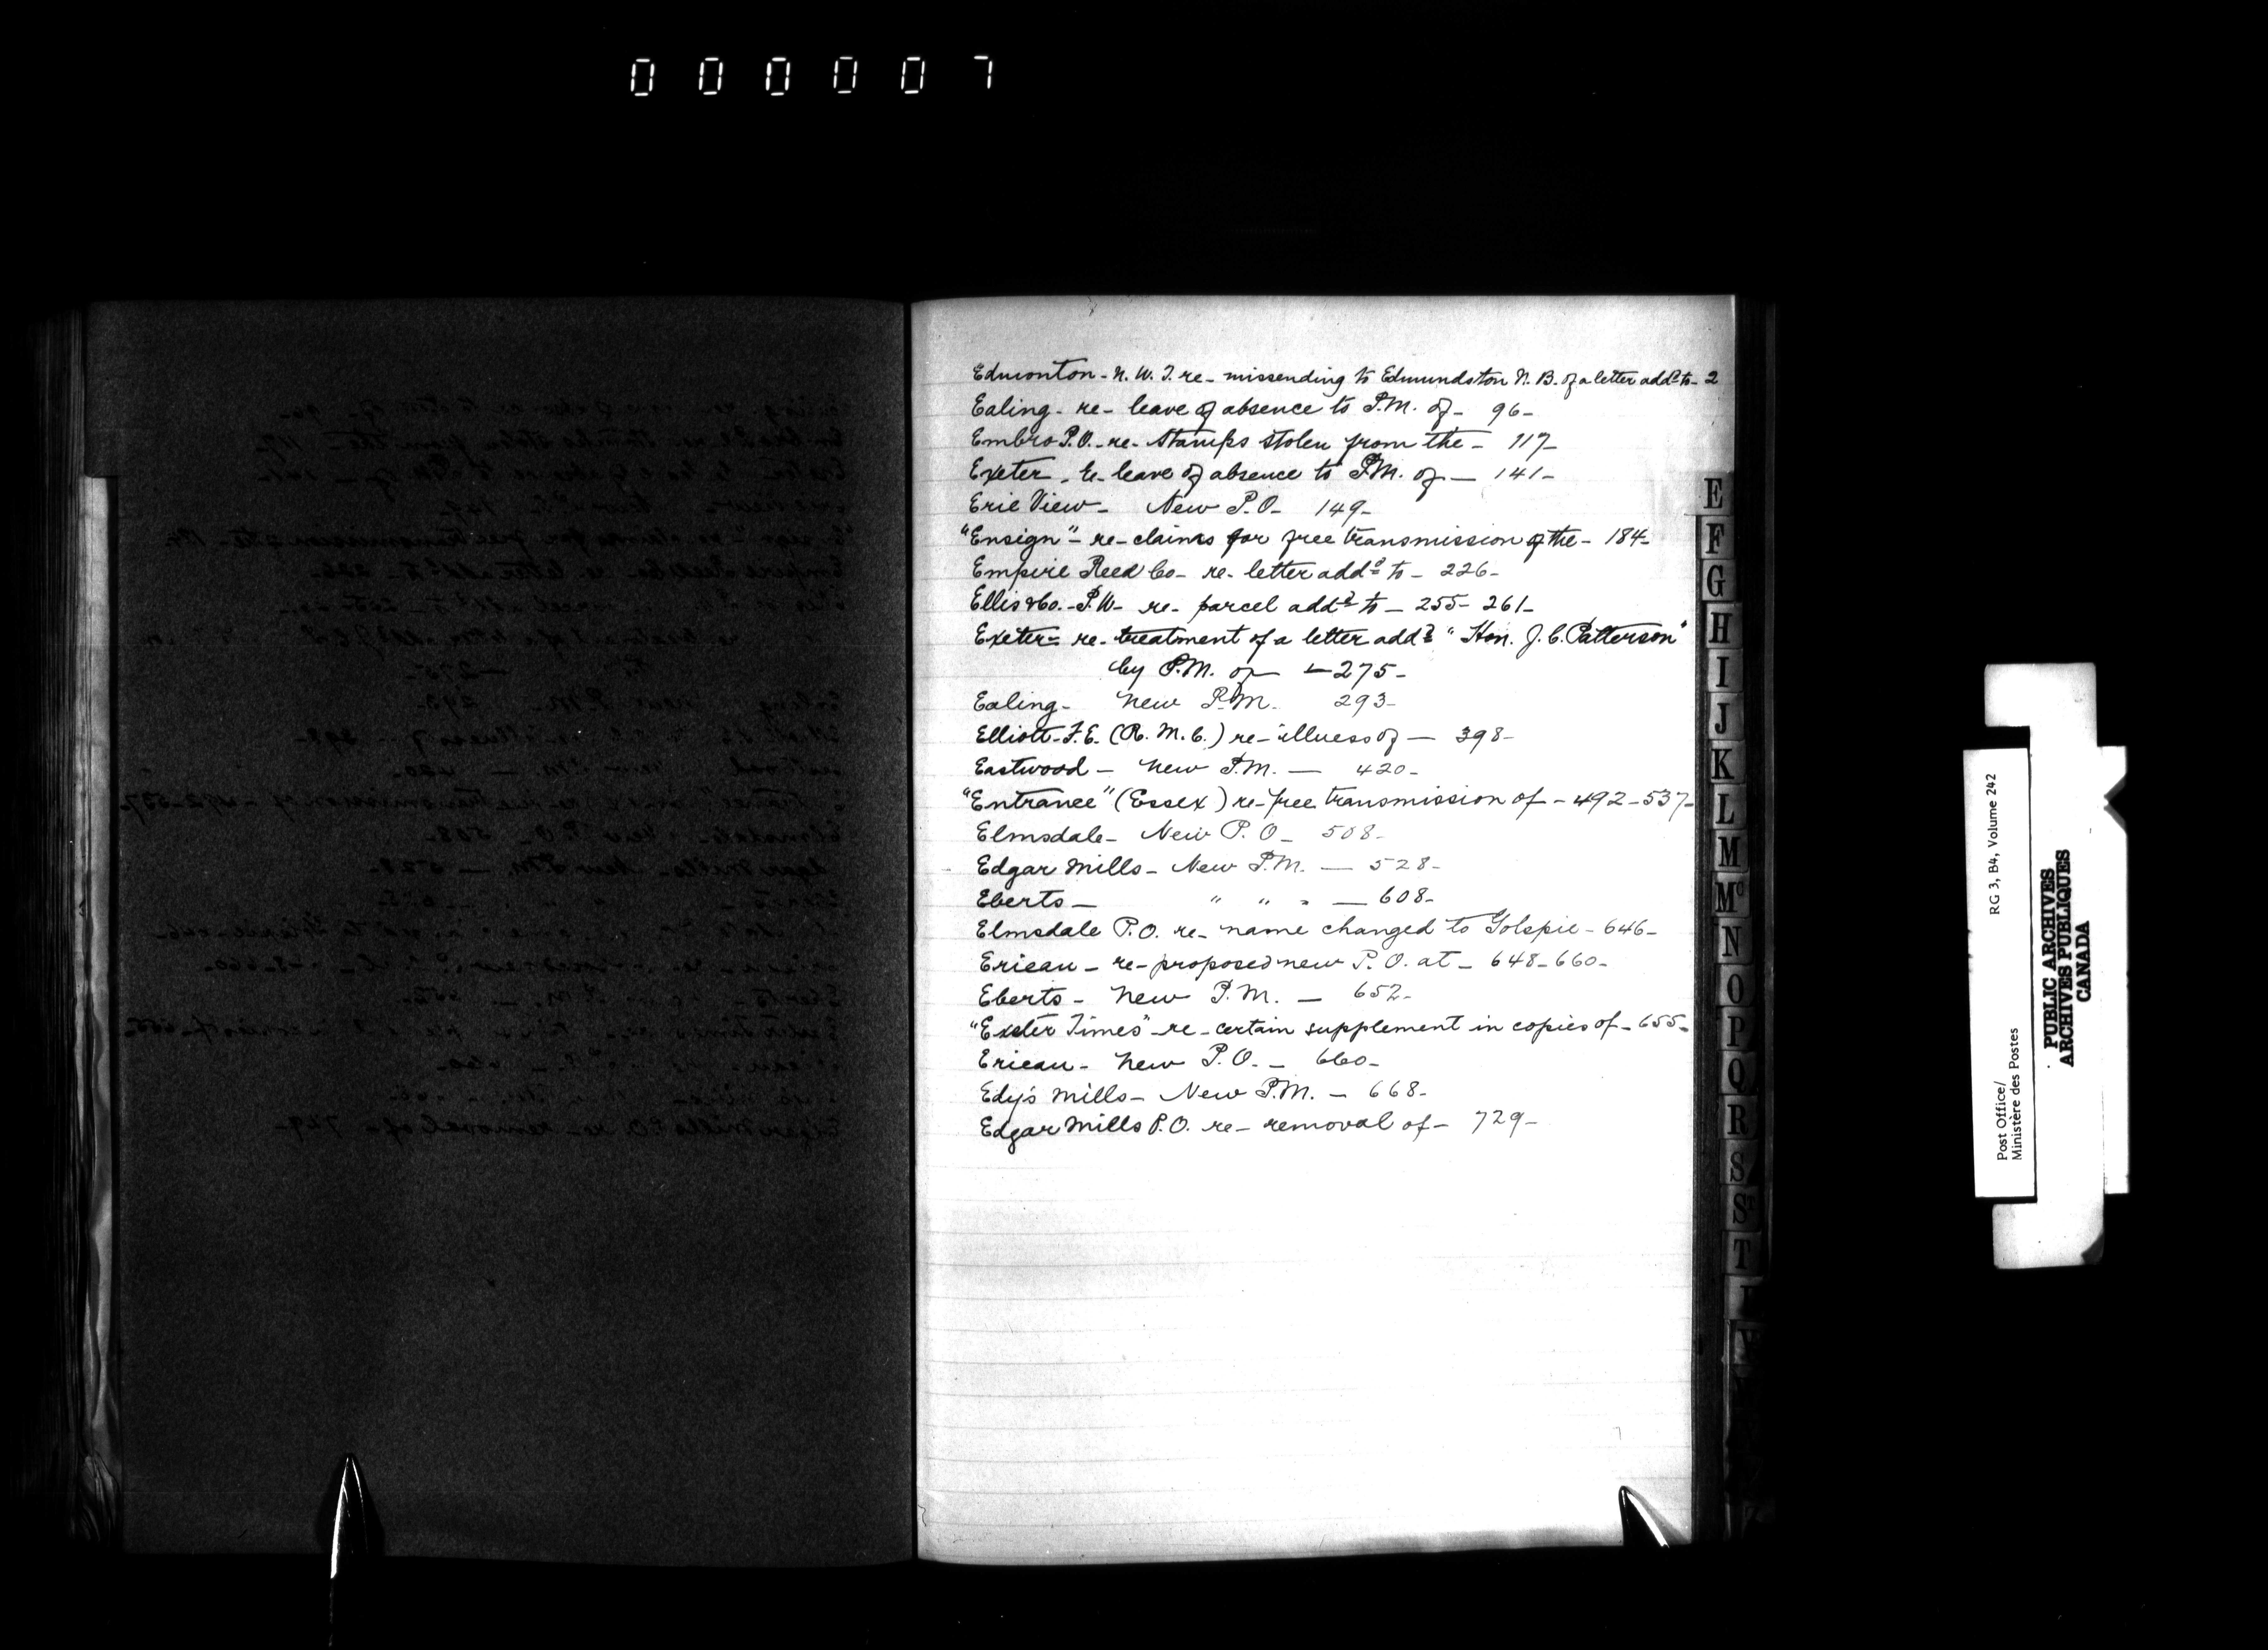 000007
Edmonton - N. W. T. re - missending to Edmundston N. B. of a letter addd to - 2
Ealing - re - leave of absence to P.M. of - 96 -
Embro P.O. - re - Stamps stolen from the - 117 -
Exeter - re - leave of absence to P.M. of - 141 -
Erie View - New P.O. - 149 -
"Ensign" - re - claims for free transmission of the - 184 -
Empire Reed Co - re - letter addd to - 226 -
Ellis & Co. - P.W - re - parcel addd to - 255 - 261 -
Exeter - re - treatment of a letter addd "Hon. J. C. Patterson"
by P.M. of - 275 -
Ealing - New P.M. 293 -
Elliott - F. E. (R. M. C.) re - illness of - 398 -
Eastwood - New P.M. - 420 -
"Entrance" (Essex) re - free transmission of - 492 - 537 -
Elmsdale - New P. O - 508 -
Edgar Mills - New P.M. - 528 -
Eberts - " " " - 608 -
Elmsdale P.O. re - name changed to Golspie - 646 -
Erieau - re - proposed new P. O. at - 648 - 660 -
Eberts - New P.M. - 652 -
"Exeter Times" - re - certain supplement in copies of - 655 -
Erieau - New P. O. - 660 -
Edy's Mills - New P.M. - 668 -
Edgar Mills P.O. re - removal of - 729 -
E
F
G
H
I
J
K
L
M
Mc
N
O
P
Q
R
S
St
T
Post Office/
Ministère des Postes
RG 3, B4, Volume 242
PUBLIC ARCHIVES
ARCHIVES PUBLIQUES
CANADA